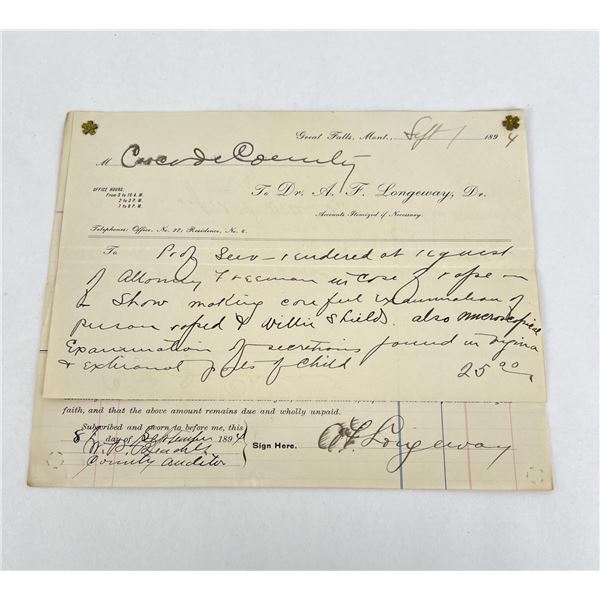 Great Falls, Mont., Sept 1 1894
M Cascade County
OFFICE HOURS
From 9 to 10 A. M.
2 to 3 P. M.
7 to 8 P. M.
To Dr. A. F. Longeway, Dr.
Accounts Itemized if Necessary.
Telephones: Office, No. 22; Residence, No. 6.
To Prof Serv- rendered at request
of Attorney Freeman in case of rape -
to Show making careful examination of
person raped & Willie Shields. also microscopical
Examination of secretions found in vagina
& external parts of child 25 00
faith, and that the above amount remains due and wholly unpaid.
Subscribed and sworn to before me, this
8 day of September 1894
W. P.
County Auditor
Sign Here.
A F Longeway